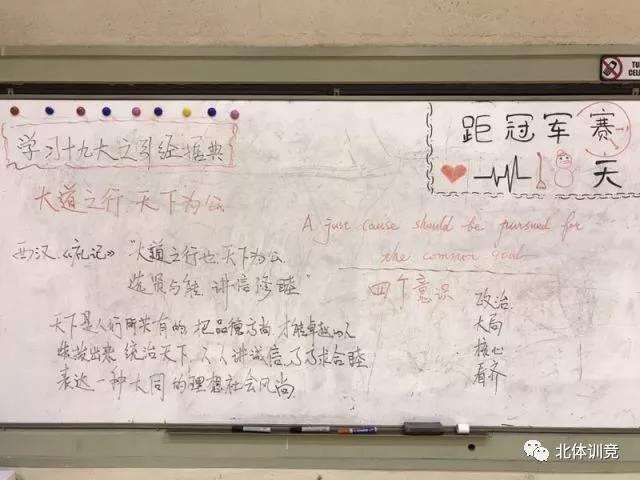 TU
CELL
学习十九大之引经据典
距冠军赛
天
大道之行 天下为公
A just cause should be pursued for
the common good
西汉《礼记》"大道之行也天下为公
选贤与能 讲信修睦"
四个意识
政治
大局
核心
看齐
天下是人们所共有的 把品德高尚 才能卓越的人
选拔出来 统治天下 人人讲诚信
求合睦
表达一种大同的理想社会风尚
北体训竞